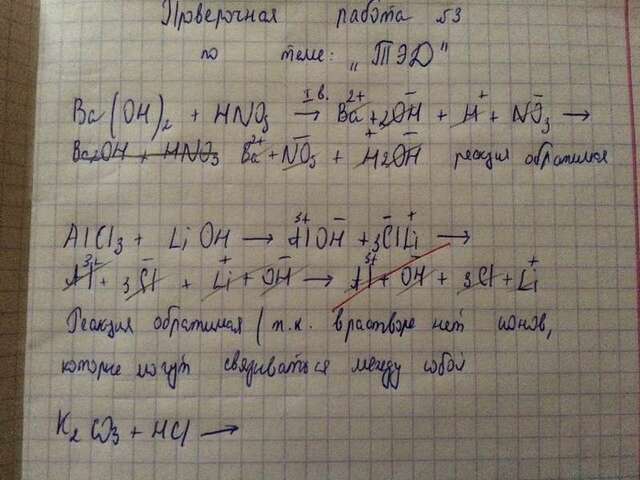 Проверочная работа №3
по теме: „ТЭД"
Ba(OH)₂ + HNO₃ →(I в.) Ba²⁺ + 2OH⁻ + H⁺ + NO₃⁻ →
Ba2OH + HNO₃ Ba²⁺ + NO₃⁻ + H⁺2OH⁻ реакция обратимая
AlCl₃ + LiOH → Al³⁺OH⁻ + 3Cl⁻Li⁺ →
Al³⁺ + 3Cl⁻ + Li⁺ + OH⁻ → Al³⁺ + OH⁻ + 3Cl + Li⁺
Реакция обратимая (т.к. в растворе нет ионов,
которые могут связываться между собой
K₂CO₃ + HCl →